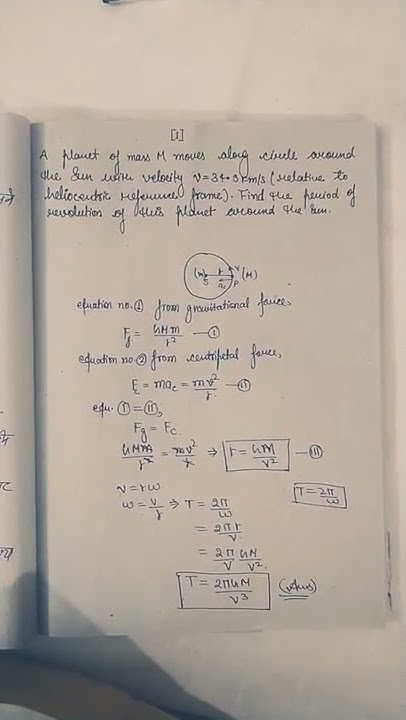 [1]
A planet of mass M moves along circle around
the Sun with velocity v = 34.0 km/s (relative to
heliocentric reference frame). Find the period of
revolution of this planet around the Sun.
(m) S r v P (M)
ac
equation no. ① from gravitational force,
Fg = GMm/r² — ①
equation no. ② from centripetal force,
Fc = mac = mv²/r — ⑪
equ. ① = ⑪,
Fg = Fc
GMm/r² = mv²/r ⇒ r = GM/v² — ⑪
v = rω
T = 2π/ω
ω = v/r ⇒ T = 2π/ω
= 2πr/v
= 2π/v GM/v²
T = 2πGM/v³